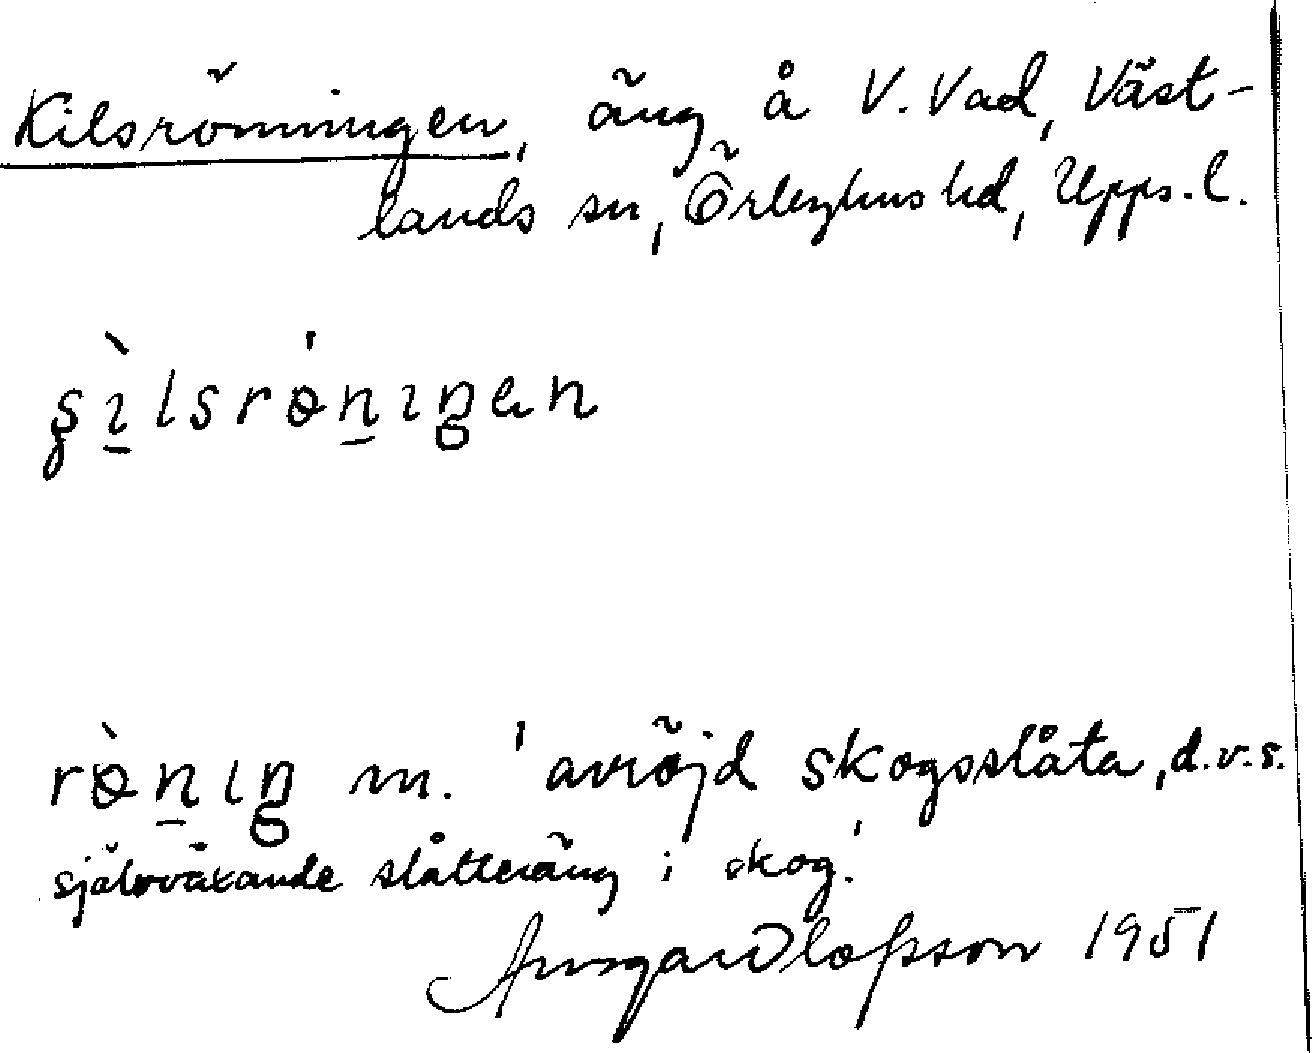 Kilsrönningen, äng å V. Vad, Väst-
lands sn, Örbyhus hd, Upps. l.
ʂìlsrö́nıŋen
rɵ̀nıŋ m. 'avröjd skogsslåta, d.v.s.
självväxande slåtteräng i skog.'
Ansgar Olofsson 1951